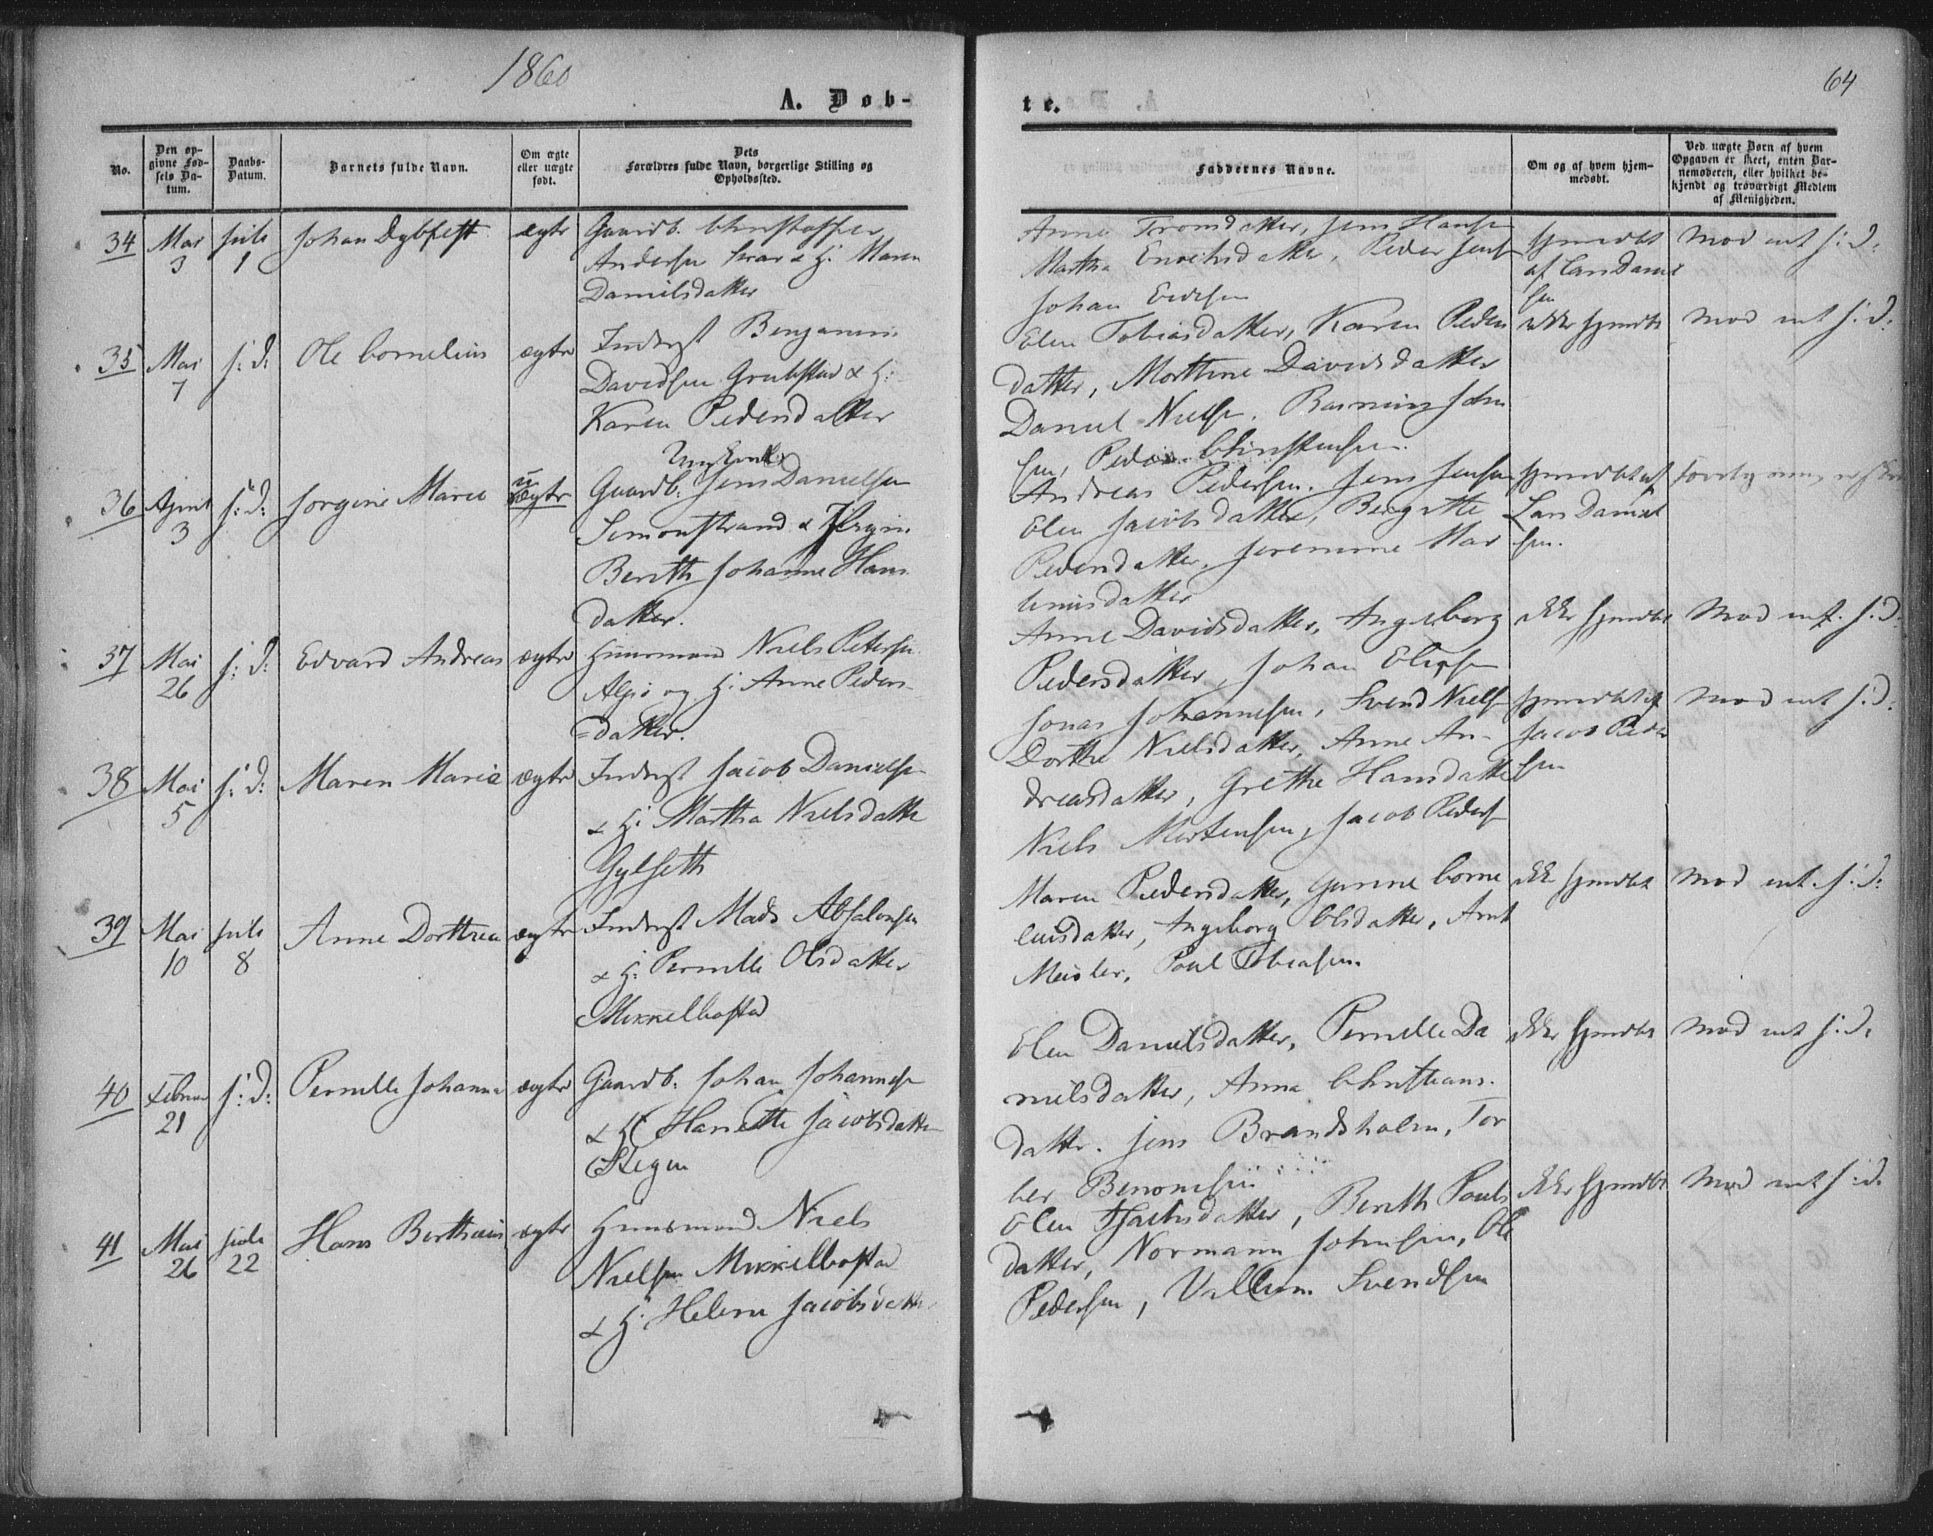 1860
64
A. Døb-
te.
No.
Den op-
givne Fød-
sels Da-
tum.
Daabs-
Datum.
Barnets fulde Navn.
Om ægte
eller uægte
født.
Dets
Forældres fulde Navn, borgerlige Stilling og
Opholdssted.
Faddernes Navne.
Om og af hvem hjem-
medøbt.
Ved uægte Børn af hvem
Opgaven er skeet, enten Bar-
nemoderen, eller hvilket be-
kjendt og troværdigt Medlem
af Menigheden.
34
Mai
3
Juli
1
Johan Dybfest
ægte
Gaardb. Christoffer
Andersen & H: Maren
Danielsdatter
Anne Tromsdatter, Jens Hansen
Martha Enochsdatter, Peder Jensen
Johan
hjmdbt
af Lars Daniel
sen
Mod ent s: d:
35
Mai
7
s: d:
Ole Cornelius
ægte
Inderst Benjamin
Davidsen Grubstad & H:
Karen Pedersdatter
Elen Tobiasdatter, Karen Peders
datter, Morthine Davidsdatter
Daniel Nielsen, Johan
sen, Peder Christensen
ikke hjmdbt
Mod ent s: d:
36
April
3
s: d:
Jorgine Marie
u
ægte
Ungkarl
Gaardb. Jens Danielsen
Simonstrand & Pigen
Berith Johanne Hans
datter.
Andreas Pedersen, Jens Jensen
Elen Jacobsdatter, Bergitte
Pedersdatter, Jeremine Mar
datter
hjmdbt af
Lars Daniel
sen.
37
Mai
26
s: d:
Edvard Andreas
ægte
Huusmand Niels Petersen
og H: Anne Peders-
=datter.
Anne Davidsdatter, Ingeborg
Pedersdatter, Johan
Jonas Johannesen, Svend Nielsen
ikke hjmdbt
Mod ent. s: d:
38
Mai
5
s: d:
Maren Maria
ægte
Inderst Jacob Danielsen
& H: Martha Nielsdatter
Gylseth
Dorthe Nielsdatter, Anne An-
dreasdatter, Grethe Hansdatter
Niels Mortensen, Jacob Pedersen
hjmdbt af
Jacob Peder
sen
Mod ent s: d:
39
Mai
10
Juli
8
Anne Dorthea
ægte
Inderst Mads Absalonsen
& H: Pernille Olsdatter
Mikkelbostad
Maren Pedersdatter, Gunne Corne
liusdatter, Ingeborg Olsdatter, Arnt
Meisler, Poul Tobiasen
ikke hjmdbt
Mod ent. s: d:
40
Februar
21
s: d:
Pernille Johanna
ægte
Gaardb. Johan Johannesen
& H: Hanette Jacobsdatter
Stegen
Elen Danielsdatter, Pernille Da
nielsdatter, Anna Christians
datter. Jens Brandsholm, Tor
ber Benonisen
ikke hjmdbt
Mod ent s: d:
41
Mai
26
Juli
22
Hans Berthæus
ægte
Huusmand Niels
Nielsen Mikkelbostad
& H: Helene Jacobsdatter
Elen datter, Berith Pouls
datter, Normann Johnsen, Ole
Pedersen, Villum Svendsen
ikke hjmdbt
Mod ent s: d: